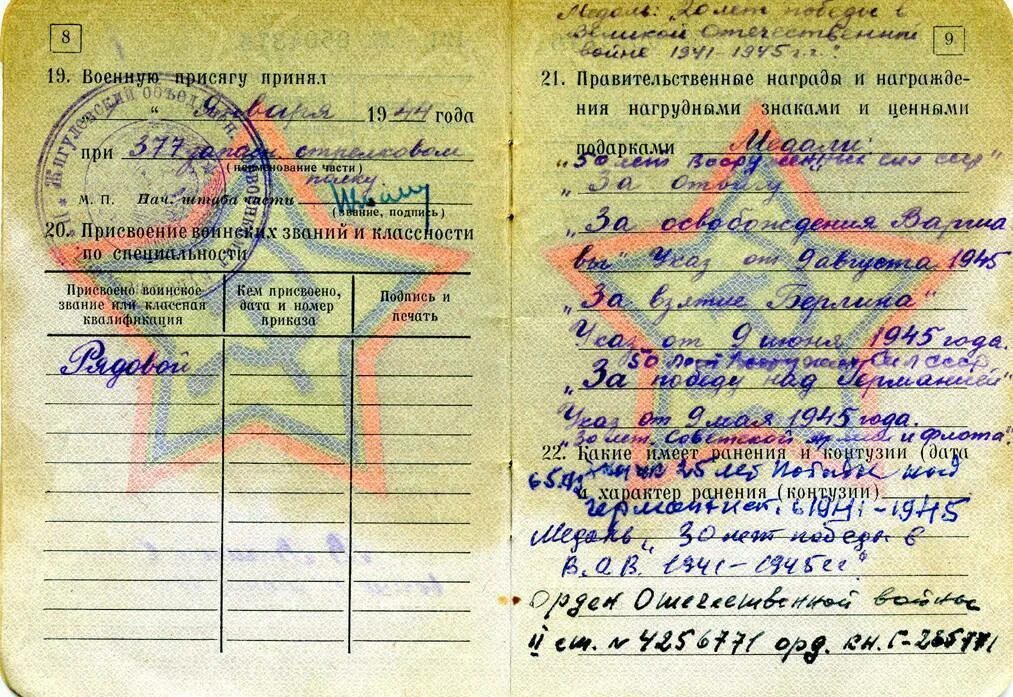 8
19. Военную присягу принял
" Января 1944 года
при 377 запасн. стрелковом
(наименование части)
полку
М. П. Нач. штаба части
(звание, подпись)
20. Присвоение воинских званий и классности
по специальности
Присвоено воинское
звание или классная
квалификация
Кем присвоено,
дата и номер
приказа
Подпись и
печать
Рядовой
Медаль: "20 лет победы в
Великой Отечественной
войне 1941-1945 г.г."
9
21. Правительственные награды и награжде-
ния нагрудными знаками и ценными
подарками Медали:
"50 лет Вооруженных сил ссср"
"За отвагу"
"За освобождения Варша
вы" Указ от 9 августа 1945
"За взятие Берлина"
Указ от 9 июня 1945 года.
50 лет Вооружен. Сил ссср
"За победу над Германией"
Указ от 9 мая 1945 года.
"30 лет Советской армии и флота"
22. Какие имеет ранения и контузии (дата
25 лет Победы над
и характер ранения (контузии)
Германией. в 1941-1945
Медаль "30 лет победы в
В.О.В. 1941-1945 гг"
Орден Отечественной войны
II ст. № 4256771 орд. кн. Г-